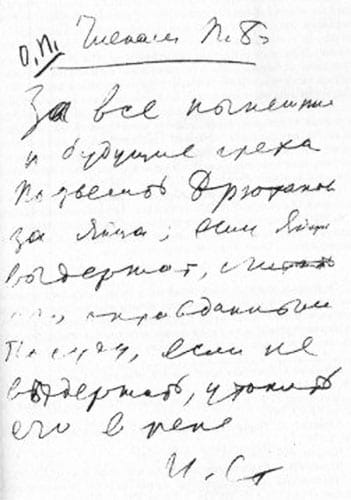 Членам П.Б.
За все нынешние
и будущие греха
подвесить Брюханова
за яйца; если яйца
выдержат, считать
его оправданным
по суду, если не
выдержат, утопить
его в реке
И. Ст